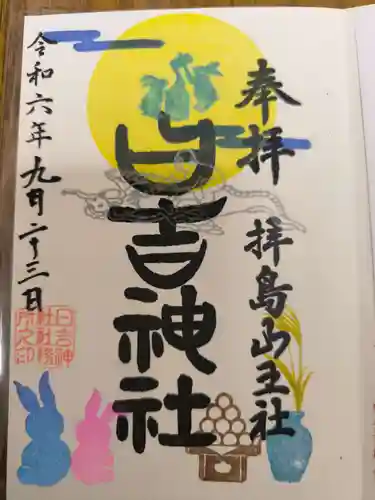 奉拝
拝島山王社
日吉神社
令和六年九月二十三日
日吉神
社社務
所之印